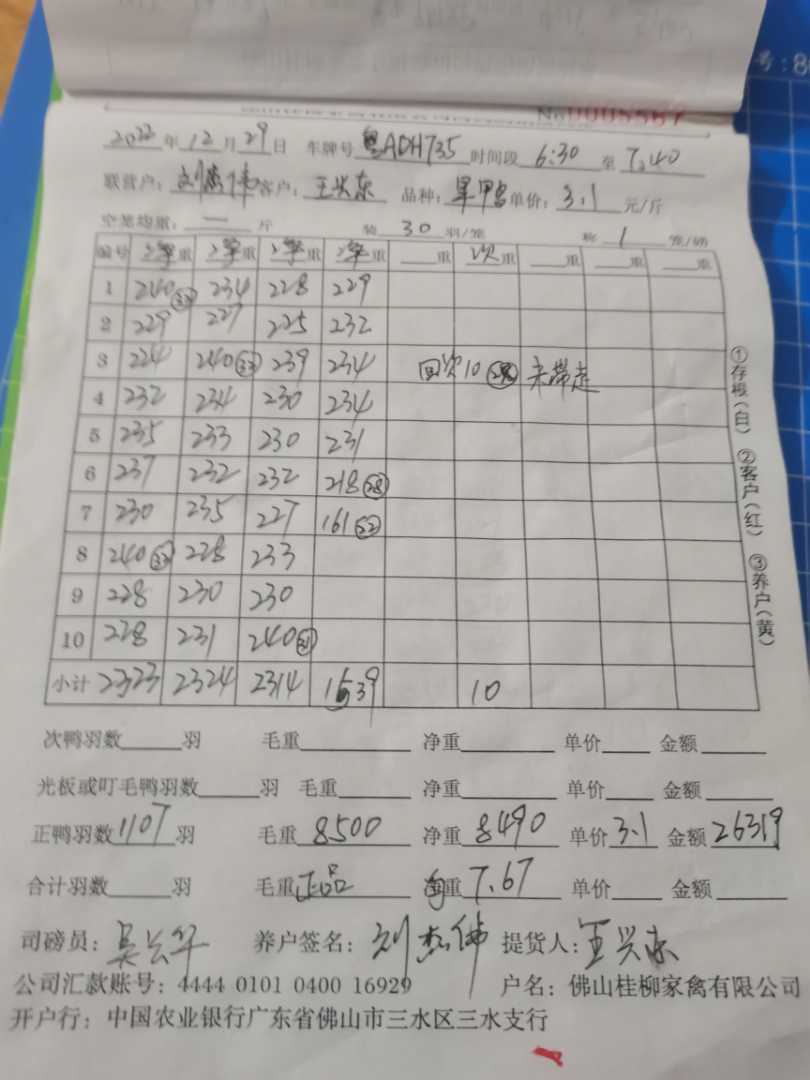 No 0005567
2022年12月29日 车牌号 粤ADH735 时间段 6:30 至 7:40
联营户: 客户: 王兴东 品种: 单价: 3.1 元/斤
空笼均重: 一 斤 装 30 羽/笼 称 1 笼/磅
编号 重 重 重 重 重 次重 重 重 重
1 240 234 228 229
2 229 227 225 232
3 224 240 239 234 回次10 未带走
4 232 234 230 234
5 235 233 230 231
6 237 232 232 218 28
7 230 235 227 161 22
8 240 228 233
9 228 230 230
10 228 231 240 31
小计 2323 2324 2314 1539 10
①存根(白) ②客户(红) ③养户(黄)
次鸭羽数 羽 毛重 净重 单价 金额
光板或叮毛鸭羽数 羽 毛重 净重 单价 金额
正鸭羽数 1107 羽 毛重 8500 净重 8490 单价 3.1 金额 26319
合计羽数 羽 毛重 正品 重 7.67 单价 金额
司磅员: 养户签名: 提货人: 王兴东
公司汇款账号: 4444 0101 0400 16929 户名: 佛山桂柳家禽有限公司
开户行: 中国农业银行广东省佛山市三水区三水支行